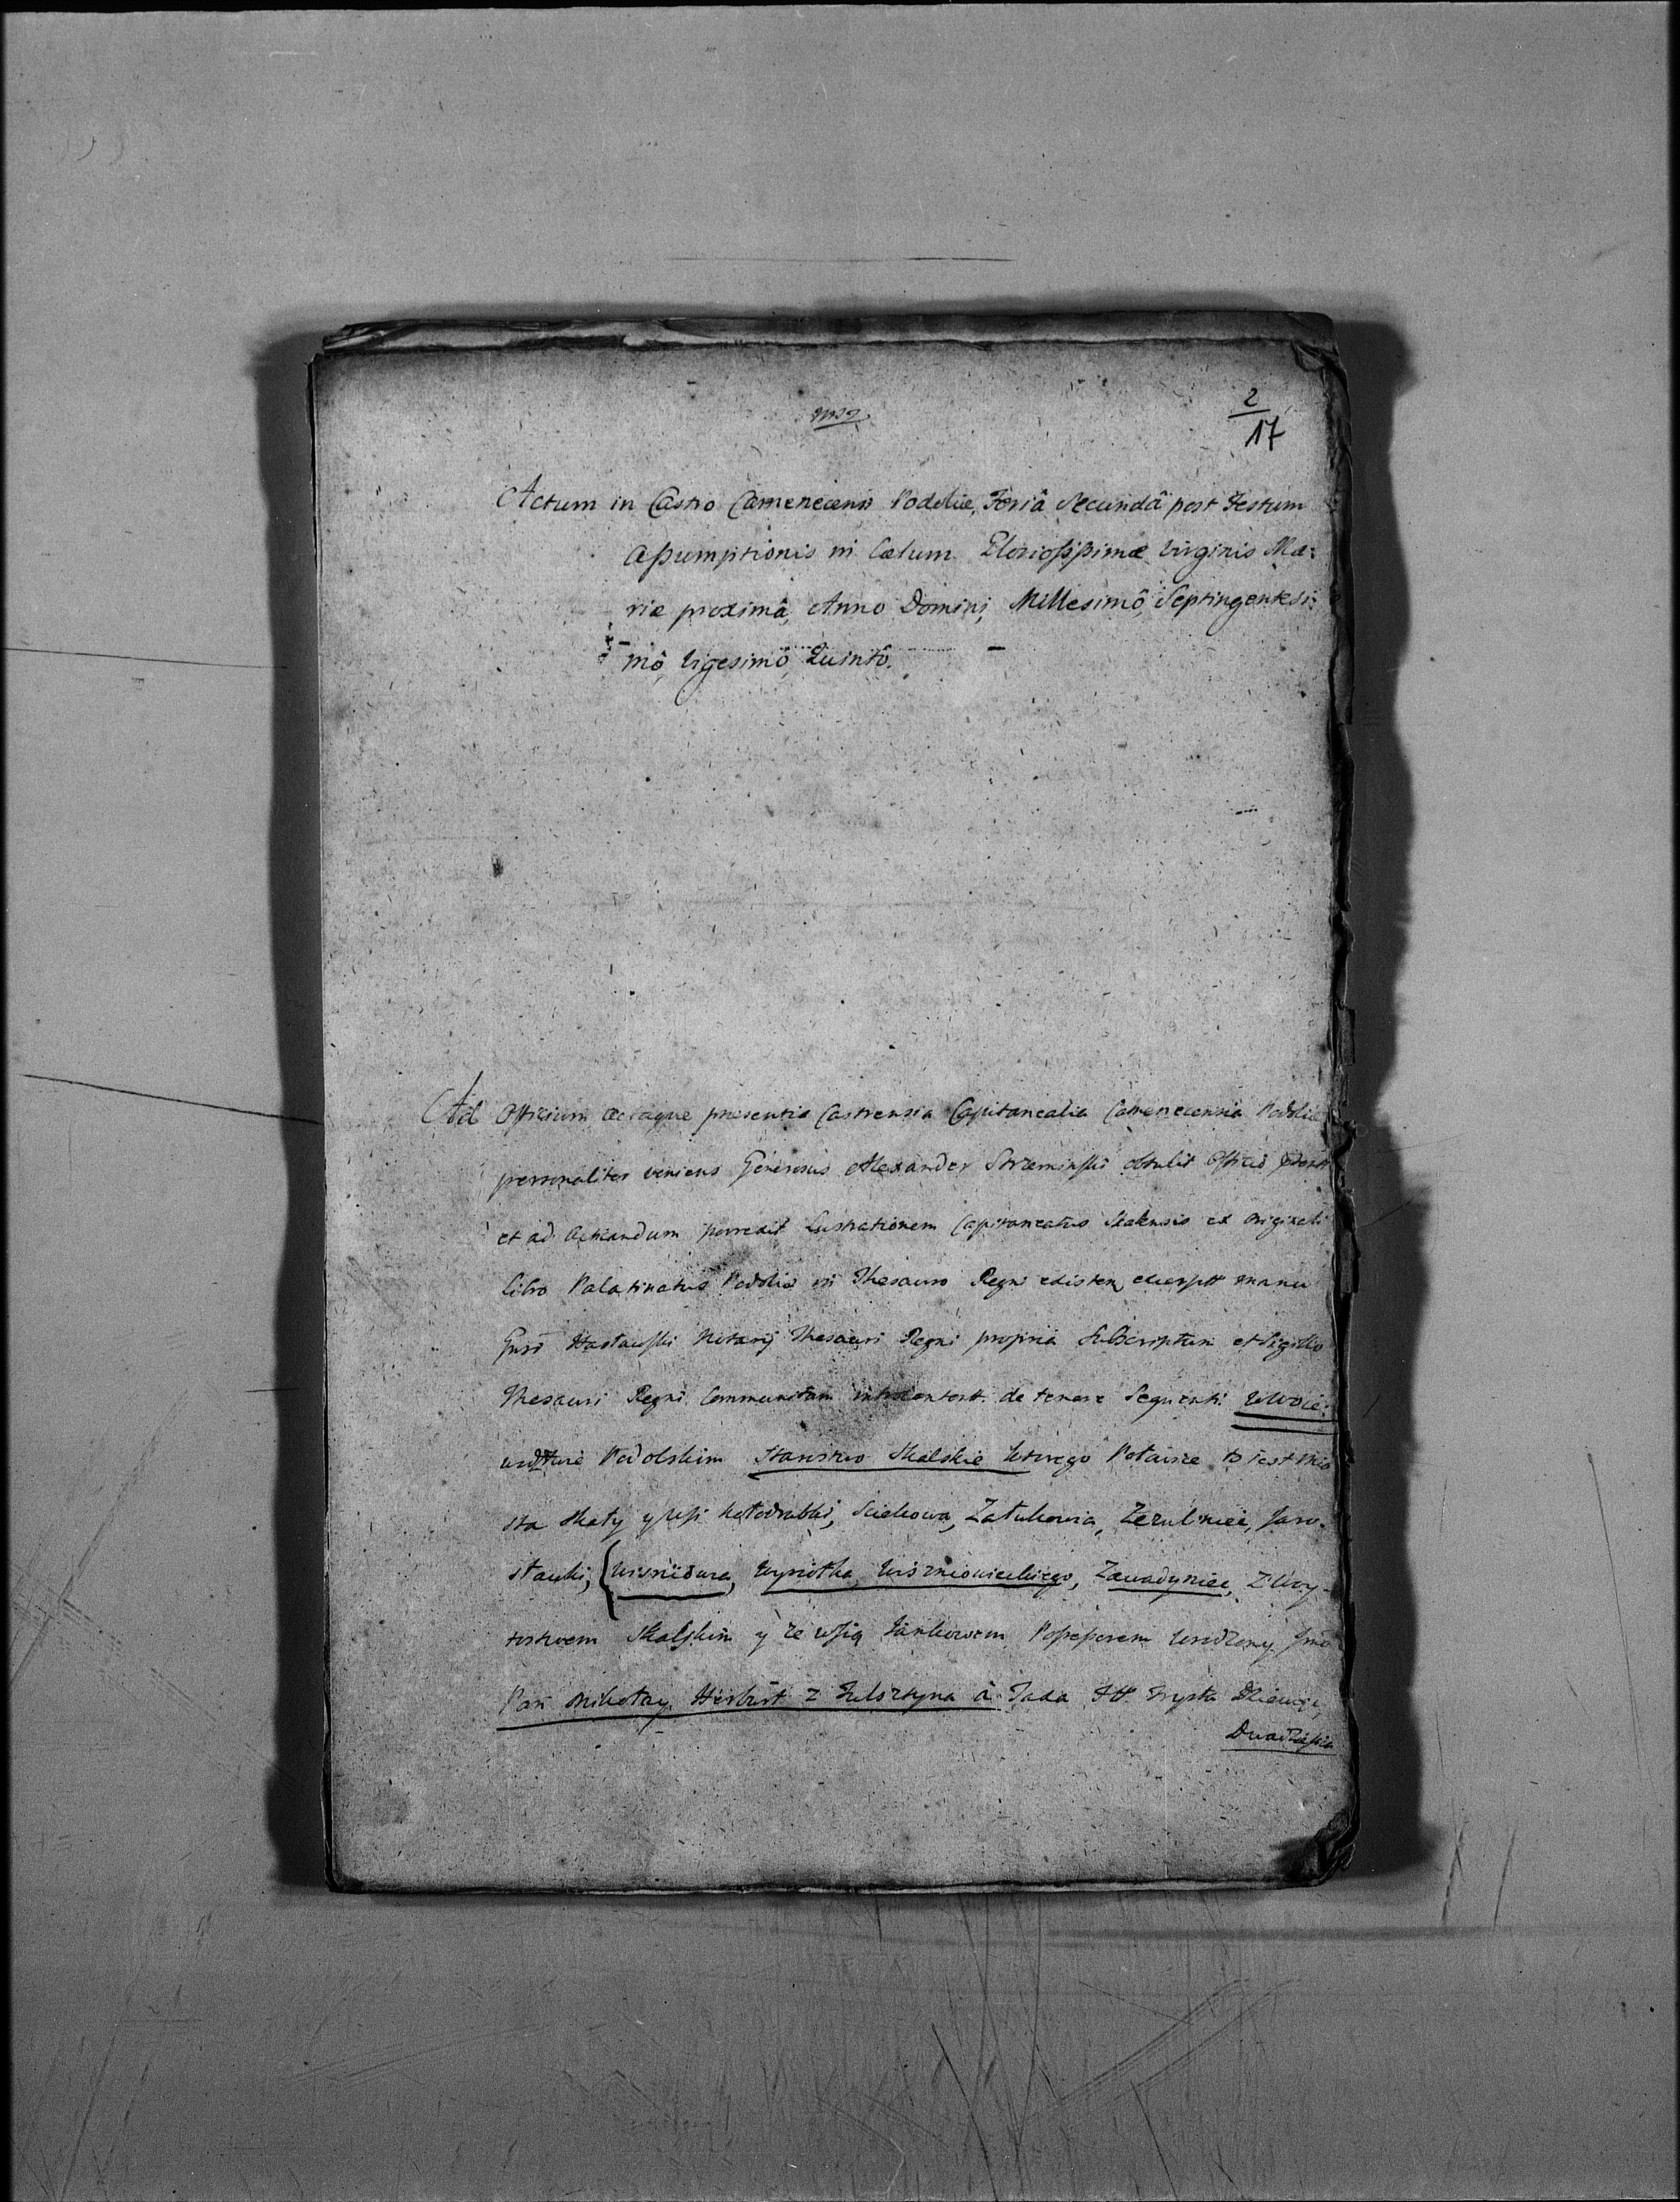 2
17
Actum in Castro Camenecensi Podoliæ, Feriâ Secundâ post Festum
Assumptionis in Cælum Gloriosissimæ Virginis Ma:
riæ proximâ, Anno Domini, Millesimô, Septingentesi:
mô, Vigesimô, Quintô.
Ad Officium Actaque præsentia Castrensia Capitanealia Camenecensia Podoliæ
personaliter veniens Generosus Alexander Strzeminski obtulit Officio
et ad Acticandum porrexit Lustrationem Capitaneatus Skalensis ex Originali
Libro Palatinatus Podoliæ in Thesauro Regni existen. manu
Notarij Thesauri Regni propria Subscriptam et Sigillo
Thesauri Regni Communitam de tenore Sequenti. W Woie:
wdztwie Podolskim Starostwo Skalskie ktorego Połowice to iest Mia
sta Skały y Wsi Kołodrubki, Sciehowa, Zatukowia, Zezulniec, Jaro-
sławki, Wisniowca, Wysiołka Wiszniowieckiego, Zawadyniec, Z Woy-
tostwem Skalskim y ze wsią Jankowcem Possessorem Urodzony Jmć
Pan Mikołay Herbùrt z Fulsztyna à
Dwadziescia